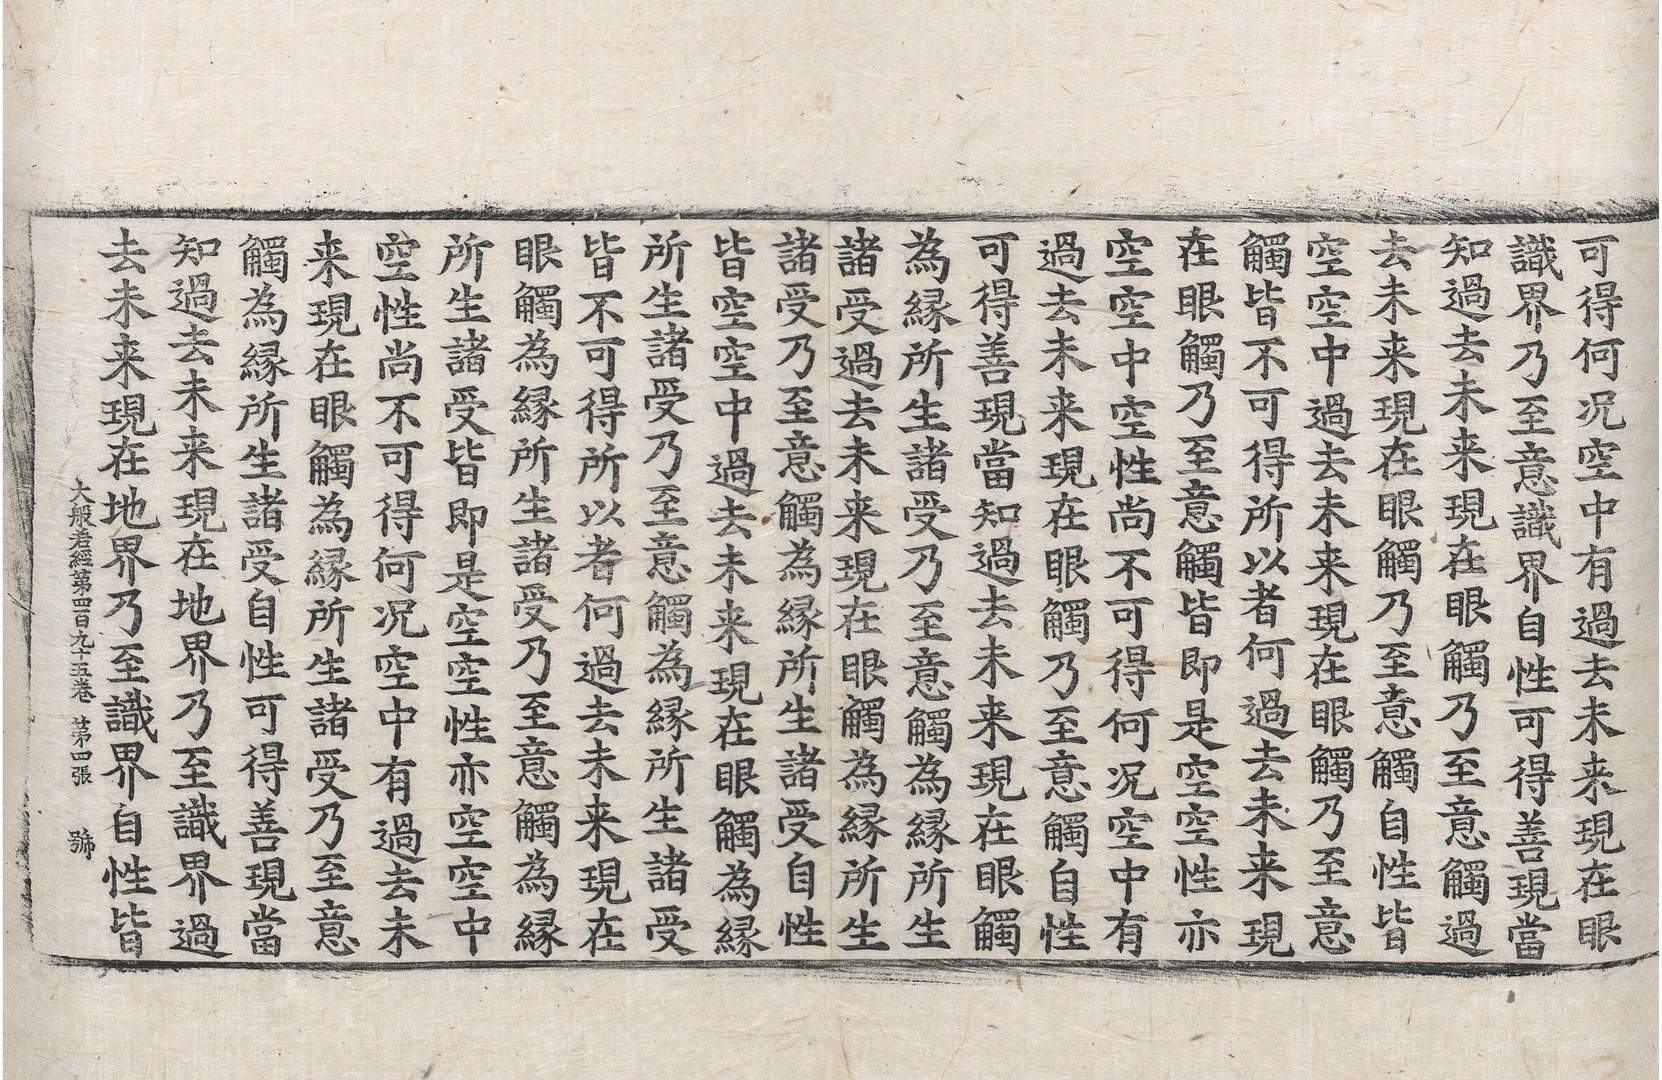 可得何况空中有過去未来現在眼
識界乃至意識界自性可得善現當
知過去未来現在眼觸乃至意觸過
去未来現在眼觸乃至意觸自性皆
空空中過去未来現在眼觸乃至意
觸皆不可得所以者何過去未来現
在眼觸乃至意觸皆即是空空性亦
空空中空性尚不可得何况空中有
過去未来現在眼觸乃至意觸自性
可得善現當知過去未来現在眼觸
為縁所生諸受乃至意觸為縁所生
諸受過去未来現在眼觸為縁所生
諸受乃至意觸為縁所生諸受自性
皆空空中過去未来現在眼觸為縁
所生諸受乃至意觸為縁所生諸受
皆不可得所以者何過去未来現在
眼觸為縁所生諸受乃至意觸為縁
所生諸受皆即是空空性亦空空中
空性尚不可得何况空中有過去未
来現在眼觸為縁所生諸受乃至意
觸為縁所生諸受自性可得善現當
知過去未来現在地界乃至識界過
去未来現在地界乃至識界自性皆
大般若經第四百九十五卷 苐四張 號